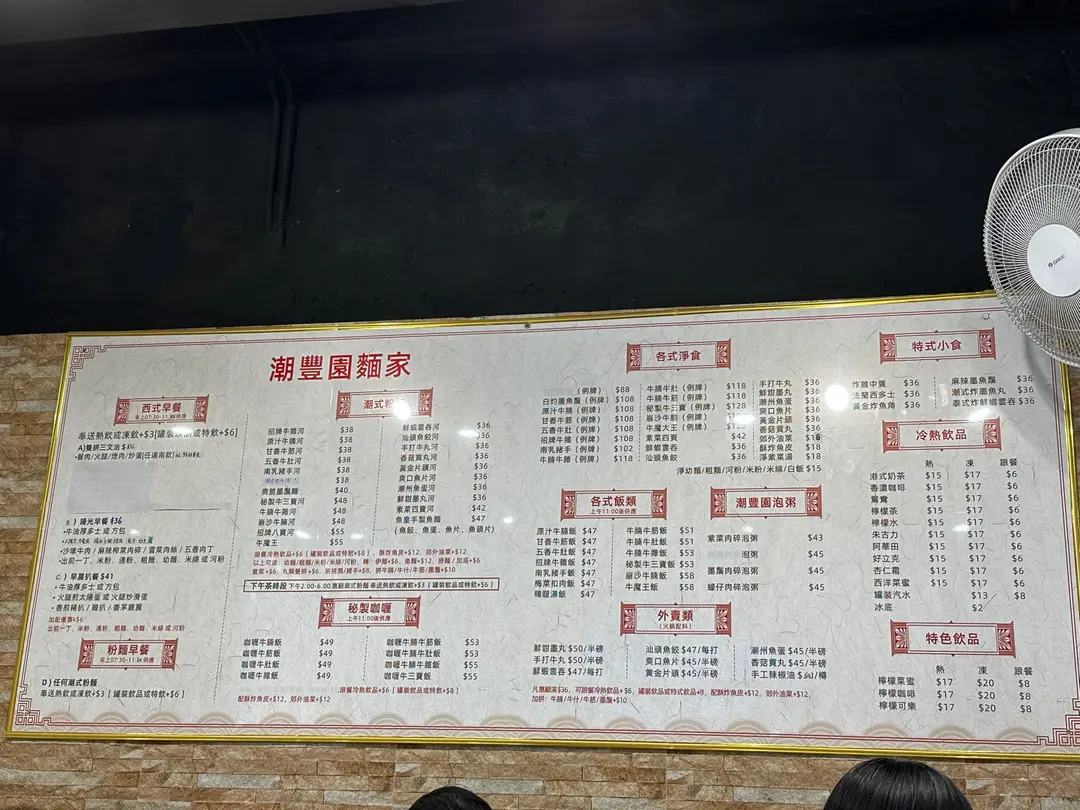 潮豐園麵家
西式早餐
早上07:30-11:30供應
奉送熱飲或凍飲+$3[罐裝飲品或特飲+$6]
A)雙拼三文治
•餐肉/火腿/煙肉/炒蛋(任選兩款)
B.) 陽光早餐 $36
•牛油厚多士 或 方包
•沙嗲牛肉 / 麻辣榨菜肉碎 / 雪菜肉絲 / 五香肉丁
•出前一丁、米粉、通粉、粗麵、幼麵、米線 或 河粉
C ) 早晨扒餐 $41
•牛油厚多士 或 方包
•火腿煎太陽蛋 或 火腿炒滑蛋
•香煎豬扒 / 雞扒 / 香茅雞翼
加配優惠+$6
出前一丁、米粉、通粉、粗麵、幼麵、米線 或 河粉
粉麵早餐
早上07:30-11:30供應
D ) 任何潮式粉麵
奉送熱飲或凍飲+$3 [ 罐裝飲品或特飲+$6 ]
潮式粉
招牌牛筋河 $38
原汁牛腩河 $38
甘香牛筋河 $38
五香牛肚河 $38
南乳豬手河 $38
$38
爽脆墨鬚麵 $40
秘製牛三寶河 $48
牛腩牛雜河 $48
崩沙牛腩河 $48
招牌八寶河 $55
牛魔王 $55
鮮蝦雲吞河 $36
汕頭魚餃河 $36
手打牛丸河 $36
香菇貢丸河 $36
黃金片頭河 $36
爽口魚片河 $36
潮州魚蛋河 $36
鮮甜墨丸河 $36
紫菜四寶河 $42
魚皇手製魚麵 $47
( 魚餃、魚蛋、魚片、魚頭片)
跟餐冷熱飲品+$6 [ 罐裝飲品或特飲+$8 ] , 酥炸魚皮+$12、郊外油菜+$12
下午茶時段 下午2:00-6:00惠顧潮式粉麵 奉送熱飲或凍飲+$3 [ 罐裝飲品或特飲+$6 ]
秘製咖喱
上午11:00後供應
咖喱牛腩飯 $49
咖喱牛筋飯 $49
咖喱牛肚飯 $49
咖喱牛雜飯 $49
咖喱牛腩牛筋飯 $53
咖喱牛腩牛肚飯 $53
咖喱牛腩牛雜飯 $55
咖喱牛三寶飯 $55
跟餐冷熱飲品+$6 [ 罐裝飲品或特飲+$8 ]
配酥炸魚皮+$12、郊外油菜+$12
各式淨食
(例牌) $88
白灼墨魚鬚 (例牌) $108
原汁牛腩 (例牌) $108
甘香牛筋 (例牌) $108
五香牛肚 (例牌) $108
招牌牛雜 (例牌) $108
南乳豬手 (例牌) $102
牛腩牛雜 (例牌) $118
牛腩牛肚 (例牌) $118
牛腩牛筋 (例牌) $118
秘製牛三寶 (例牌) $128
崩沙牛腩 (例牌)
牛魔大王 (例牌) $128
紫菜四寶 $42
鮮蝦雲吞 $36
汕頭魚餃 $36
手打牛丸 $36
鮮甜墨丸 $36
潮州魚蛋 $36
爽口魚片 $36
黃金片頭 $36
香菇貢丸 $36
郊外油菜 $18
酥炸魚皮 $18
淨紫菜湯 $18
淨幼麵/粗麵/河粉/米粉/米線/白飯 $15
各式飯類
上午11:00後供應
原汁牛腩飯 $47
甘香牛筋飯 $47
五香牛肚飯 $47
招牌牛雜飯 $47
南乳豬手飯 $47
梅菜扣肉飯 $47
鴨腿湯飯 $47
牛腩牛筋飯 $51
牛腩牛肚飯 $51
牛腩牛雜飯 $53
秘製牛三寶飯 $53
崩沙牛腩飯 $58
牛魔王飯 $58
潮豐園泡粥
紫菜肉碎泡粥 $43
泡粥 $45
墨鬚肉碎泡粥 $45
蠔仔肉碎泡粥 $45
外賣類
(火鍋配料)
鮮甜墨丸 $50/半磅
手打牛丸 $50/半磅
鮮蝦雲吞 $47/每打
汕頭魚餃 $47/每打
爽口魚片 $45/半磅
黃金片頭 $45/半磅
潮州魚蛋 $45/半磅
香菇貢丸 $45/半磅
手工辣椒油
凡惠顧滿$36，可跟餐冷熱飲品+$6，罐裝飲品或特式飲品+8，配酥炸魚皮+$12、郊外油菜+$12，
加拼：牛腩/牛什/牛筋/墨鬚+$10
特式小食
炸雞中翼 $36
法蘭西多士 $36
黃金炸魚角 $36
麻辣墨魚鬚 $36
潮式炸墨魚丸 $36
泰式炸鮮蝦雲吞 $36
冷熱飲品
熱 凍 跟餐
港式奶茶 $15 $17 $6
香濃咖啡 $15 $17 $6
鴛鴦 $15 $17 $6
檸檬茶 $15 $17 $6
檸檬水 $15 $17 $6
朱古力 $15 $17 $6
阿華田 $15 $17 $6
好立克 $15 $17 $6
杏仁霜 $15 $17 $6
西洋菜蜜 $15 $17 $6
罐裝汽水 $13 $8
冰底 $2
特色飲品
熱 凍 跟餐
檸檬菜蜜 $17 $20 $8
檸檬咖啡 $17 $20 $8
檸檬可樂 $17 $20 $8
GREE